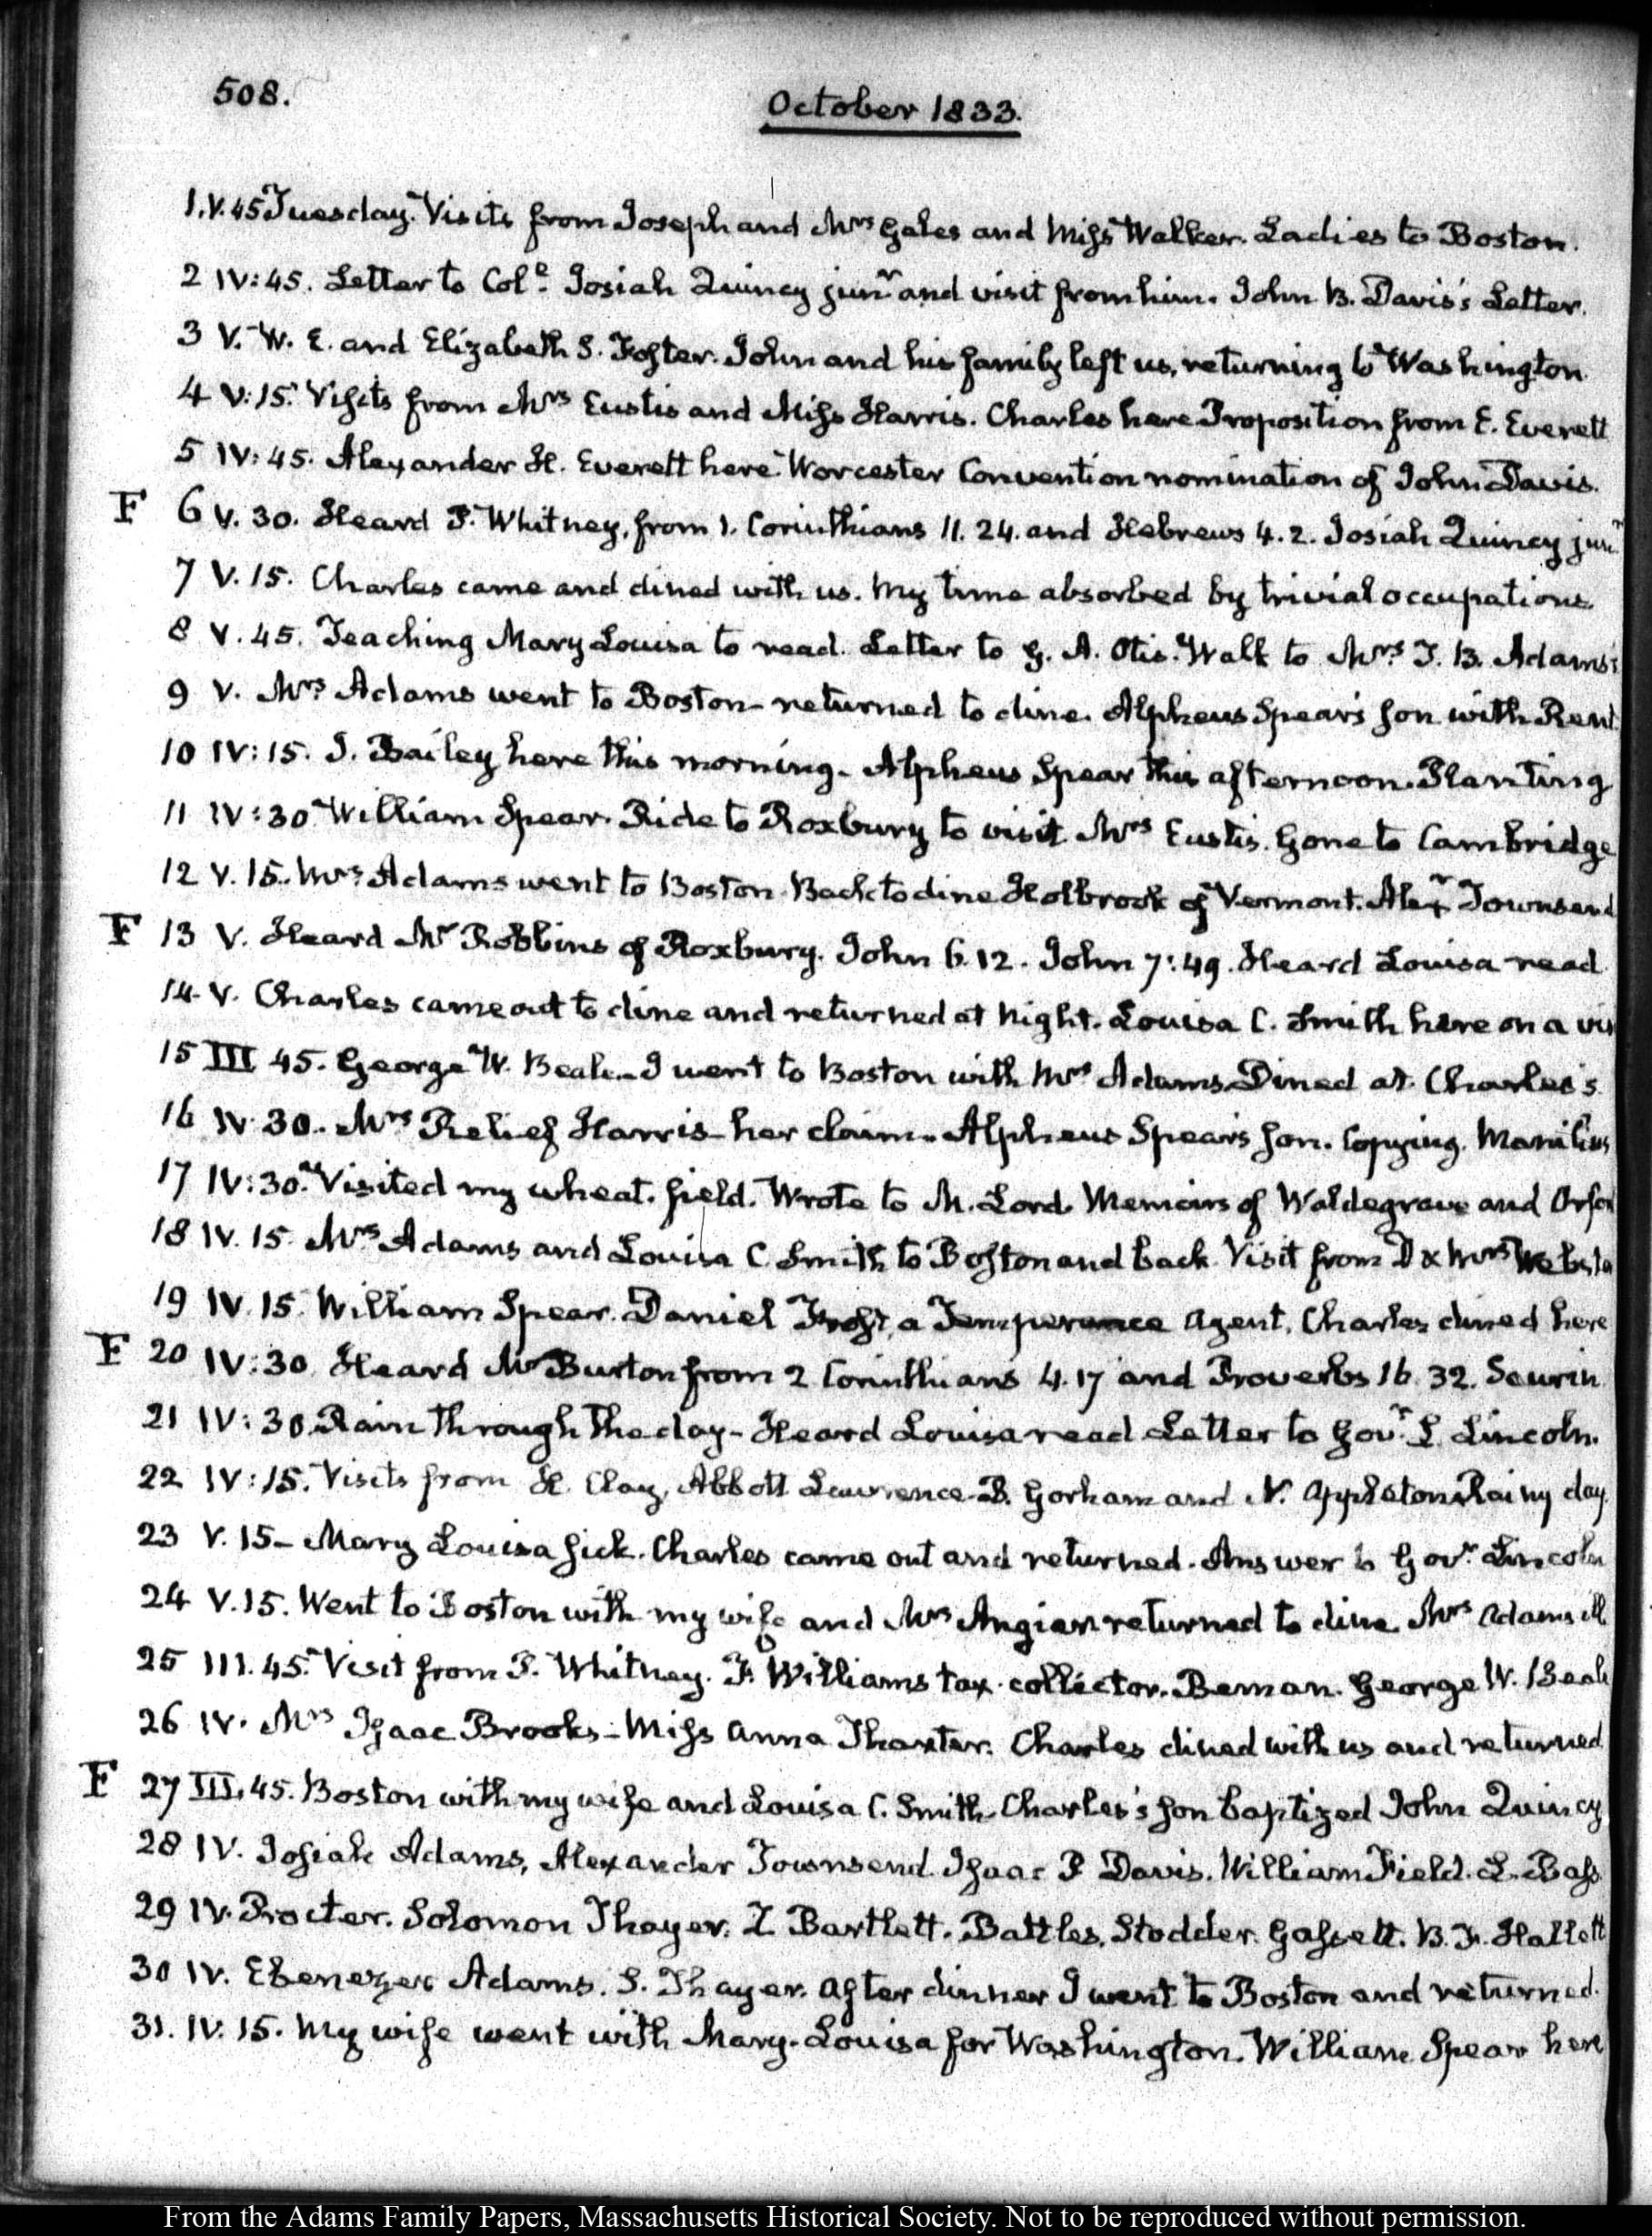 508.
October 1833.
1. V. 45 Tuesday. Visits from Joseph and Mrs Gales and Miss Walker. Ladies to Boston.
2 IV: 45. Letter to Col.l Josiah Quincy junr and visit from him. John B. Davis's Letter.
3 V. W. E. and Elizabeth S. Foster. John and his family left us, returning to Washington.
4 V: 15. Visits from Mrs Eustis and Miss Harris. Charles here Proposition from E. Everett
5 IV: 45. Alexander H. Everett here. Worcester Convention nomination of John Davis.
F 6 V. 30. Heard P. Whitney, from 1. Corinthians 11. 24. and Hebrews 4. 2. Josiah Quincy junr
7 V. 15. Charles came and dined with us. My time absorbed by trivial occupations.
8 V. 45. Teaching Mary Louisa to read. Letter to G. A. Otis. Walk to Mrs T. B. Adams's
9 V. Mrs Adams went to Boston - returned to dine. Alpheus Spear's son with Rent
10 IV: 15. J. Bailey here this morning - Alpheus Spear this afternoon. Planting
11 IV: 30 William Spear. Ride to Roxbury to visit Mrs Eustis. Gone to Cambridge
12 V. 15. Mrs Adams went to Boston. Back to dine Holbrook of Vermont. Alexr Townsend
F 13 V. Heard Mr Robbins of Roxbury. John 6. 12. John 7: 49. Heard Louisa read.
14. V. Charles came out to dine and returned at Night. Louisa C. Smith here on a vis
15 III 45. George W. Beale - I went to Boston with Mrs Adams. Dined at Charles's.
16 IV 30. Mrs Relief Harris - her claim - Alpheus Spear's son. Copying. Manilius
17 IV: 30. Visited my wheat. field. Wrote to M. Lord. Memoirs of Waldegrave and Orfor
18 IV. 15. Mrs Adams and Louisa C Smith to Boston and back. Visit from D & Mrs Webster
19 IV. 15. William Spear. Daniel Frost, a Temperance Agent. Charles dined here
F 20 IV: 30. Heard Mr Burton from 2 Corinthians 4. 17 and Proverbs 16. 32. Saurin
21 IV: 30. Rain through the day - Heard Louisa read Letter to Govr L. Lincoln.
22 IV: 15. Visits from H. Clay, Abbott Lawrence - B. Gorham and N. Appleton Rainy day.
23 V. 15 - Mary Louisa sick. Charles came out and returned. Answer to Govr Lincoln
24 V. 15. Went to Boston with my wife and Mrs Angier returned to dine. Mrs Adams ill
25 III. 45. Visit from P. Whitney. F. Williams tax. collector. Beman. George W. Beale
26 IV. Mrs Isaac Brooks - Miss Anna Thaxter. Charles dined with us and returned
F 27 III. 45. Boston with my wife and Louisa C. Smith - Charles's son baptized John Quincy
28 IV. Josiah Adams, Alexander Townsend. Isaac P Davis. William Field. L. Bass
29 IV. Procter. Solomon Thayer. I Bartlett. Battles. Stodder. Gassett. B. F. Hallett
30 IV. Ebenezer Adams. S. Thayer. After dinner I went to Boston and returned.
31. IV. 15. My wife went with Mary-Louisa for Washington. William Spear here
From the Adams Family Papers, Massachusetts Historical Society. Not to be reproduced without permission.